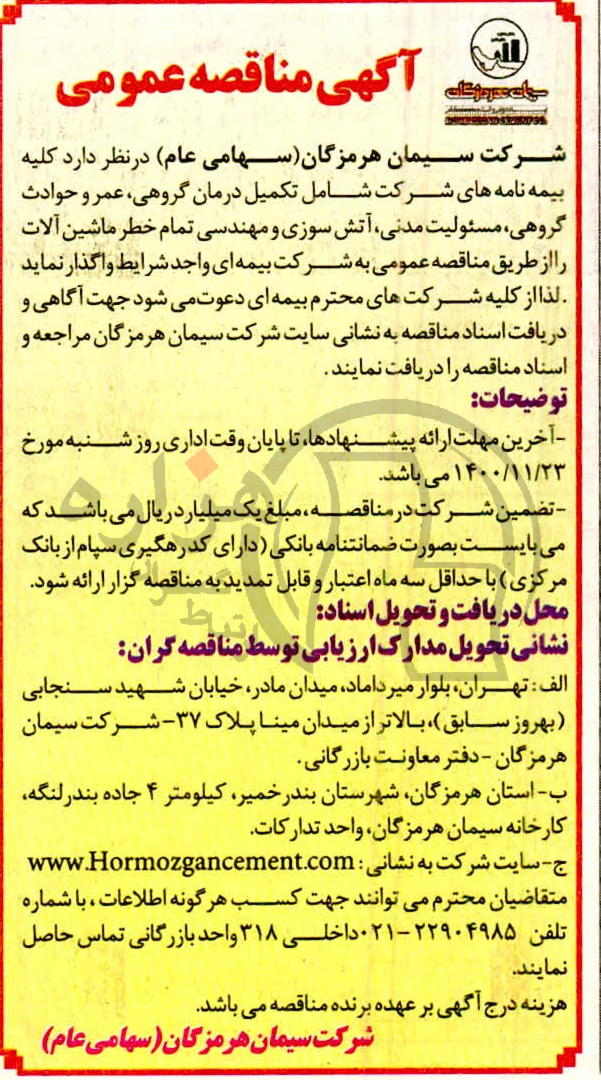 آگهی مناقصه عمومی
سیمان هرمزگان
شرکت سیمان هرمزگان(سهامی عام) درنظر دارد کلیه
بیمه نامه های شرکت شامل تکمیل درمان گروهی، عمر و حوادث
گروهی، مسئولیت مدنی، آتش سوزی و مهندسی تمام خطر ماشین آلات
رااز طریق مناقصه عمومی به شرکت بیمه ای واجد شرایط واگذار نماید
.لذا از کلیه شرکت های محترم بیمه ای دعوت می شود جهت آگاهی و
دریافت اسناد مناقصه به نشانی سایت شرکت سیمان هرمزگان مراجعه و
اسناد مناقصه را دریافت نمایند .
توضیحات:
-آخرین مهلت ارائه پیشنهادها، تا پایان وقت اداری روز شنبه مورخ
۱۴۰۰/۱۱/۲۳ می باشد.
-تضمین شرکت در مناقصه، مبلغ یک میلیارد ریال می باشد که
می بایست بصورت ضمانتنامه بانکی (دارای کد رهگیری سپام از بانک
مرکزی) با حداقل سه ماه اعتبار و قابل تمدید به مناقصه گزار ارائه شود.
محل دریافت و تحویل اسناد:
نشانی تحویل مدارک ارزیابی توسط مناقصه گران:
الف: تهران، بلوار میرداماد، میدان مادر، خیابان شهید سنجابی
(بهروز سابق)، بالاتر از میدان مینا پلاک ۳۷- شرکت سیمان
هرمزگان -دفتر معاونت بازرگانی .
ب- استان هرمزگان، شهرستان بندرخمیر، کیلومتر ۴ جاده بندرلنگه،
کارخانه سیمان هرمزگان، واحد تدارکات.
ج-سایت شرکت به نشانی : www.Hormozgancement.com
متقاضیان محترم می توانند جهت کسب هرگونه اطلاعات ، با شماره
تلفن ۲۲۹۰۴۹۸۵-۰۲۱داخلی ۳۱۸ واحد بازرگانی تماس حاصل
نمایند.
هزینه درج آگهی بر عهده برنده مناقصه می باشد.
شرکت سیمان هرمزگان (سهامی عام)
هزاره